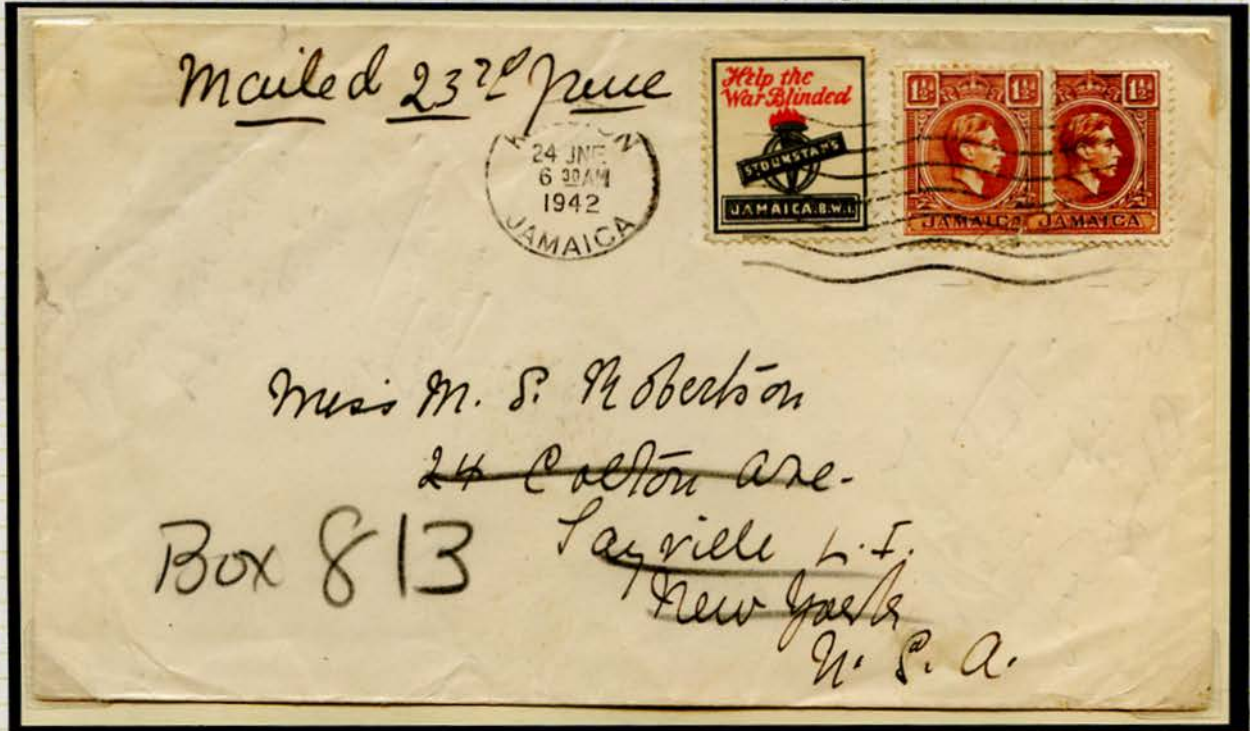 Mailed 23rd June
KINGSTON
24 JNE
6 30 AM
1942
JAMAICA
Help the
War Blinded
ST DUNSTANS
JAMAICA. B.W.I.
1½ 1½ 1½
JAMAICA JAMAICA
Miss M. S. Robertson
24 Colton Ave.
Sayville L. I.
New York
U. S. A.
Box 813